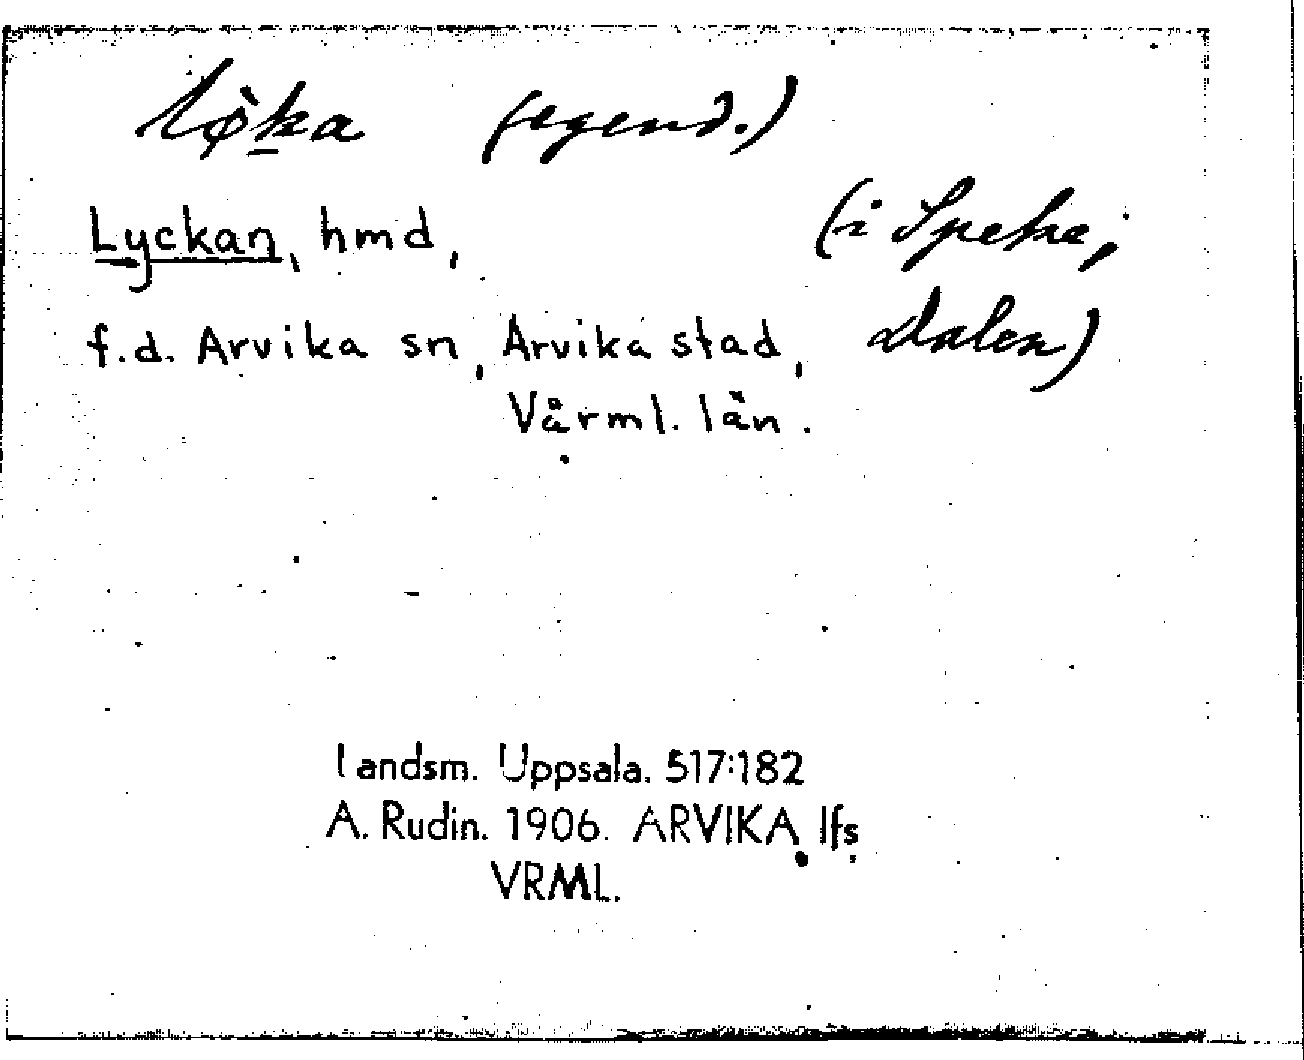 lø̀ka (egend.)
Lyckan, hmd, (i Speke,
f.d. Arvika sn, Arvika stad, Dalen)
Värml. län.
Landsm. Uppsala. 517:182
A. Rudin. 1906. ARVIKA lfs
VRML.